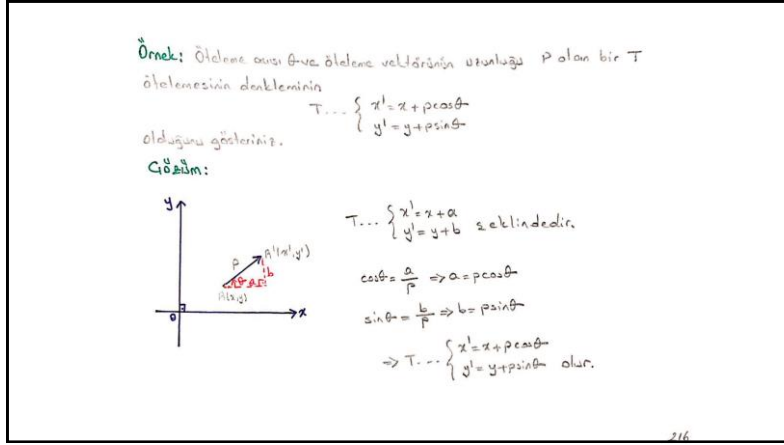 Örnek: Öteleme açısı θ ve öteleme vektörünün uzunluğu p olan bir T
ötelemesinin denkleminin
T... { x' = x + pcosθ
y' = y + psinθ
olduğunu gösteriniz.
Çözüm:
y
T... { x' = x + a
y' = y + b şeklindedir.
p A'(x',y')
θ a b
A(x,y)
0 x
cosθ = a/p => a = pcosθ
sinθ = b/p => b = psinθ
=> T... { x' = x + pcosθ
y' = y + psinθ olur.
216